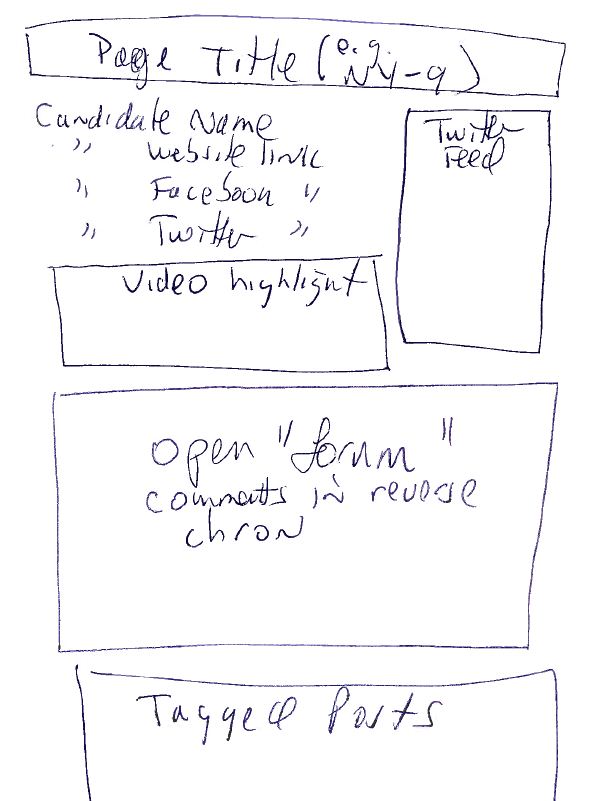 Page Title (e.g. NY-9)
Candidate Name
" Website link
" Facebook "
" Twitter "
Twitter
Feed
Video highlight
Open "forum"
comments in reverse
chron
Tagged Posts